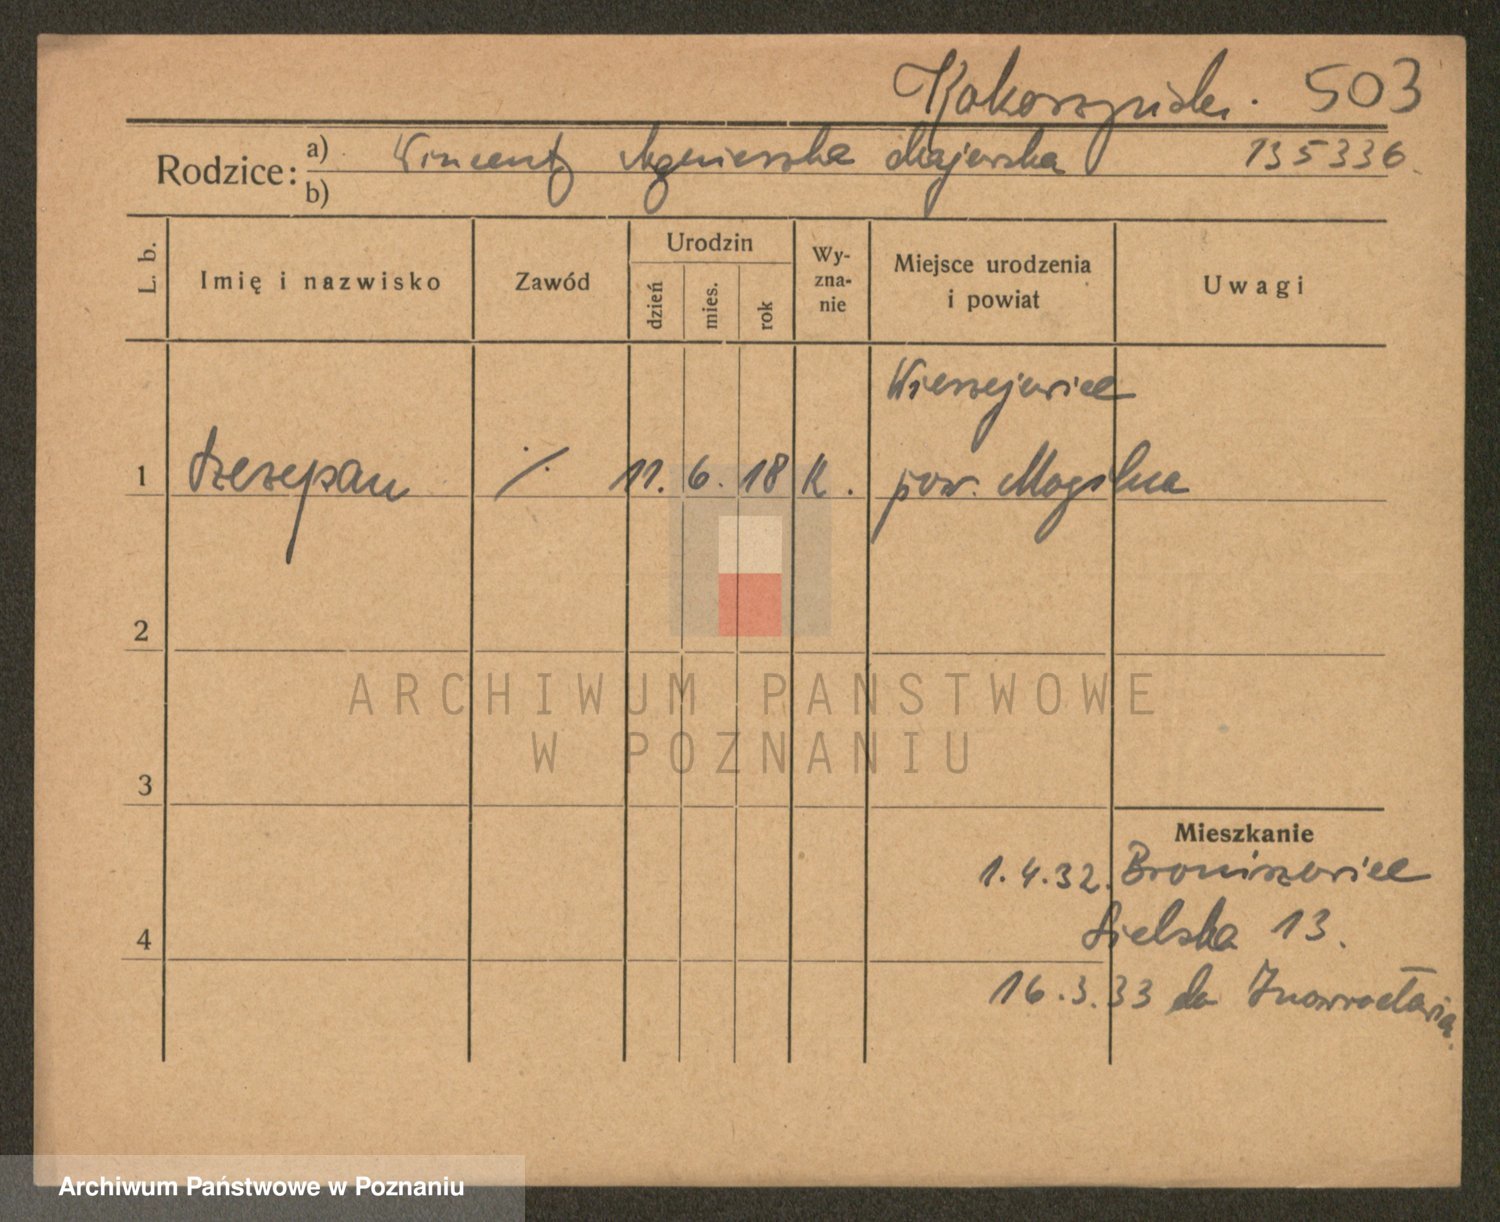 Kokorzyński. 503
Rodzice: a) Wincenty Agnieszka Majewska 135336
b)
L. b. Imię i nazwisko Zawód Urodzin dzień mies. rok Wy-zna-nie Miejsce urodzenia i powiat Uwagi
Wieszejewice
1 Szczepan ·/. 11. 6. 18 K. pow. Mogilna
2
ARCHIWUM PAŃSTWOWE
W POZNANIU
3
Mieszkanie
1.4.32. Broniszewice
4 Sielska 13.
16.3.33 do Inowrocławia.
Archiwum Państwowe w Poznaniu